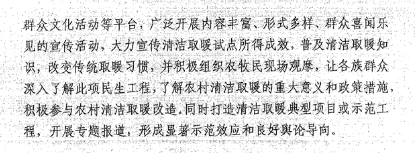 群众文化活动等平台，广泛开展内容丰富、形式多样、群众喜闻乐
见的宣传活动，大力宣传清洁取暖试点所得成效，普及清洁取暖知
识，改变传统取暖习惯，并积极组织农牧民现场观摩，让各族群众
深入了解此项民生工程，了解农村清洁取暖的重大意义和政策措施，
积极参与农村清洁取暖改造。同时打造清洁取暖典型项目或示范工
程，开展专题报道，形成显著示范效应和良好舆论导向。